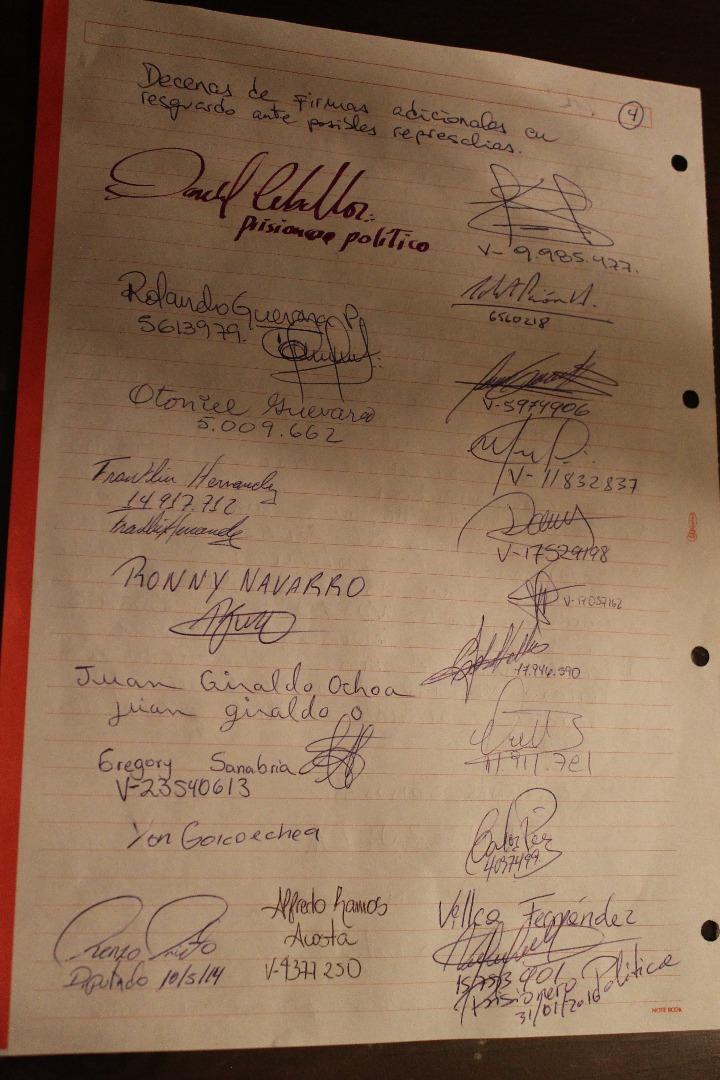 4
Decenas de Firmas adicionales en
resguardo ante posibles represalias.
Daniel Ceballos
prisionero político
Rolando Guevara P.
5613979.
Otoniel Guevara
5.009.662
Franklin Hernandez
14.917.712
Franklin Hernandez
RONNY NAVARRO
Juan Giraldo Ochoa
juan giraldo o
Gregory Sanabria
V-23540613
Yon Goicoechea
Renzo Prieto
Diputado 10/5/14
Alfredo Ramos
Acosta
V-4377250
V- 9.985.477.
6560218
V-5974906
V- 11832837
V-17529198
V-17057162
17.946.590
Carlos Pérez
4037499.
Villca Fernández
prisionero Politico
31/01/2016
NOTE BOOK